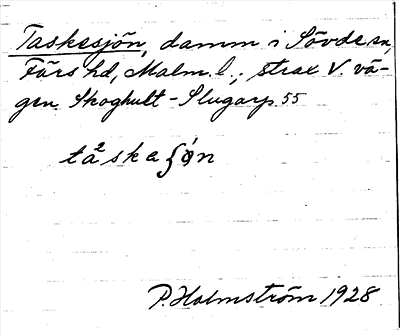 Taskesjön, damm i Sövde sn,
Färs hd, Malm. l., strax V. vä-
gen Skoghult - Slugarp 55
tå²skaʃön
P. Holmström 1928